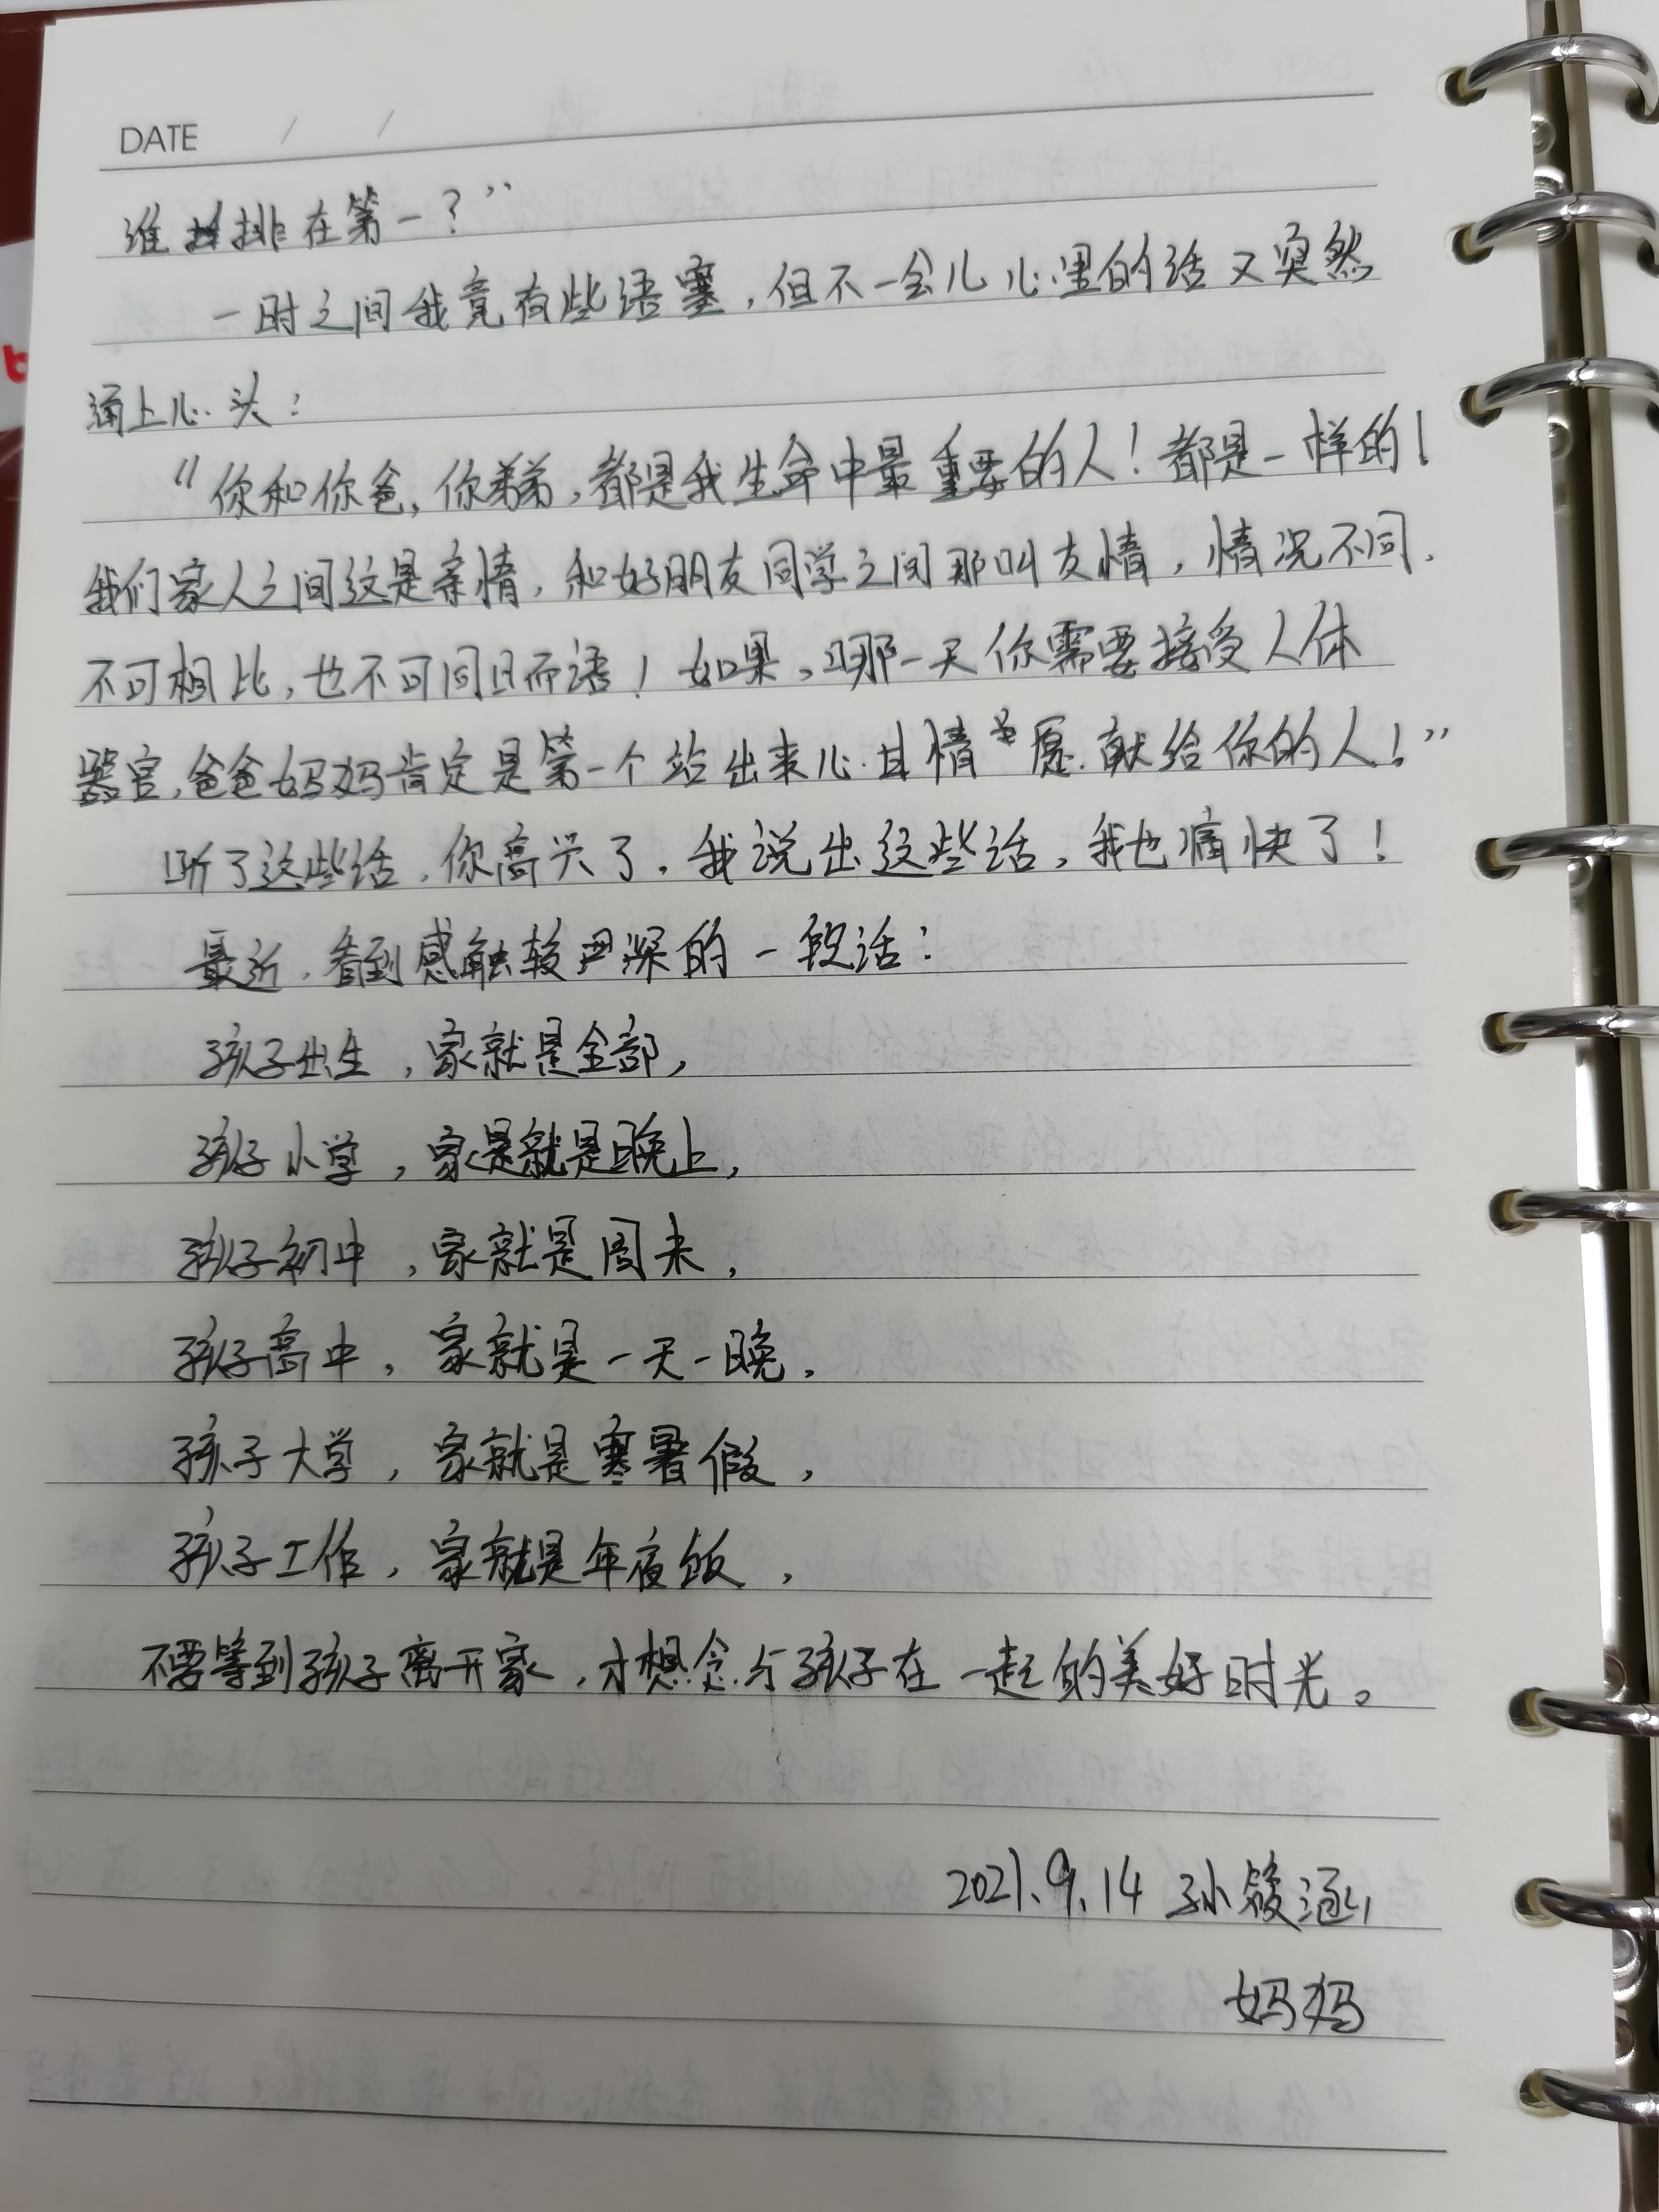 DATE / /
谁排在第一？”
一时之间我竟有些语塞，但不一会儿心里的话又突然
涌上心头：
“你和你爸，你弟弟，都是我生命中最重要的人！都是一样的！
我们家人之间这是亲情，和好朋友同学之间那叫友情，情况不同，
不可相比，也不可同日而语！如果，哪一天你需要接受人体
器官，爸爸妈妈肯定是第一个站出来心甘情愿献给你的人！”
听了这些话，你高兴了，我说出这些话，我也痛快了！
最近，看到感触较深的一段话：
孩子出生，家就是全部，
孩子小学，家是就是晚上，
孩子初中，家就是周末，
孩子高中，家就是一天一晚，
孩子大学，家就是寒暑假，
孩子工作，家就是年夜饭，
不要等到孩子离开家，才想念与孩子在一起的美好时光。
2021.9.14 孙筱涵
妈妈